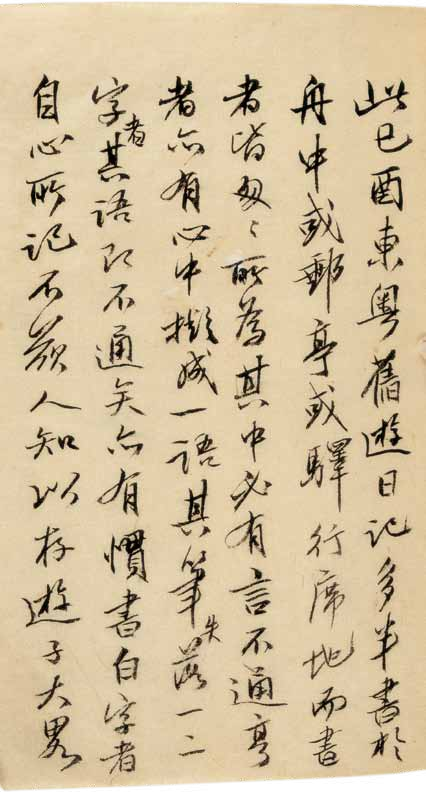 此己酉東粵舊遊日記多半書於
舟中或郵亭或驛行席地而書
者皆匆〻所為其中必有言不通
者亦有心中擬成一語其筆失落一二
字者其語即不通矣亦有慣書白字者
自心所記不欲人知以存遊子大畧